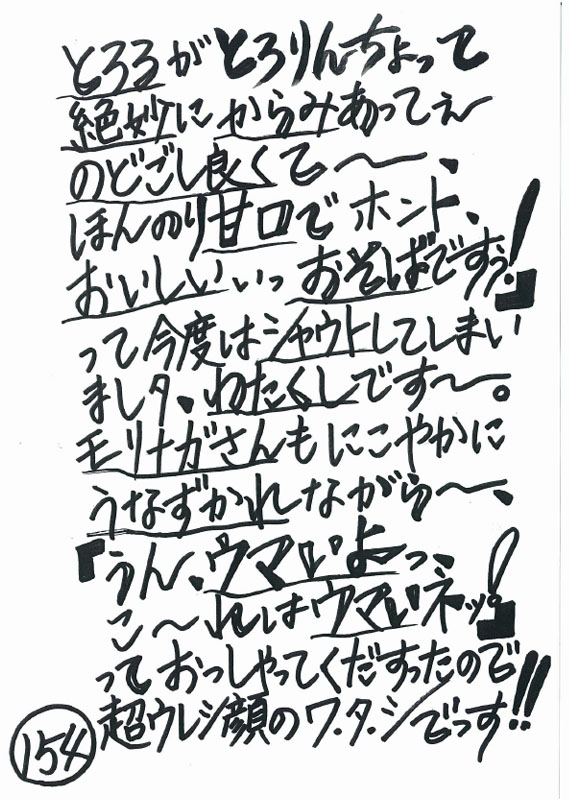 とろろがとろりんちょって
絶妙にからみあってぇ〜
のどごし良くて〜〜、
ほんのり甘口でホント、
おいしいぃっおそばですぅ!』
って今度はシャウトしてしまい
ましタ、わたくしです〜。
モリナガさんもにこやかに
うなずかれながら〜、
『うん、ウマいよーっ、
こ〜れはウマいネッ!』
っておっしゃってくだすったので
超ウレシ顔のワ・タ・シでっす!!
154